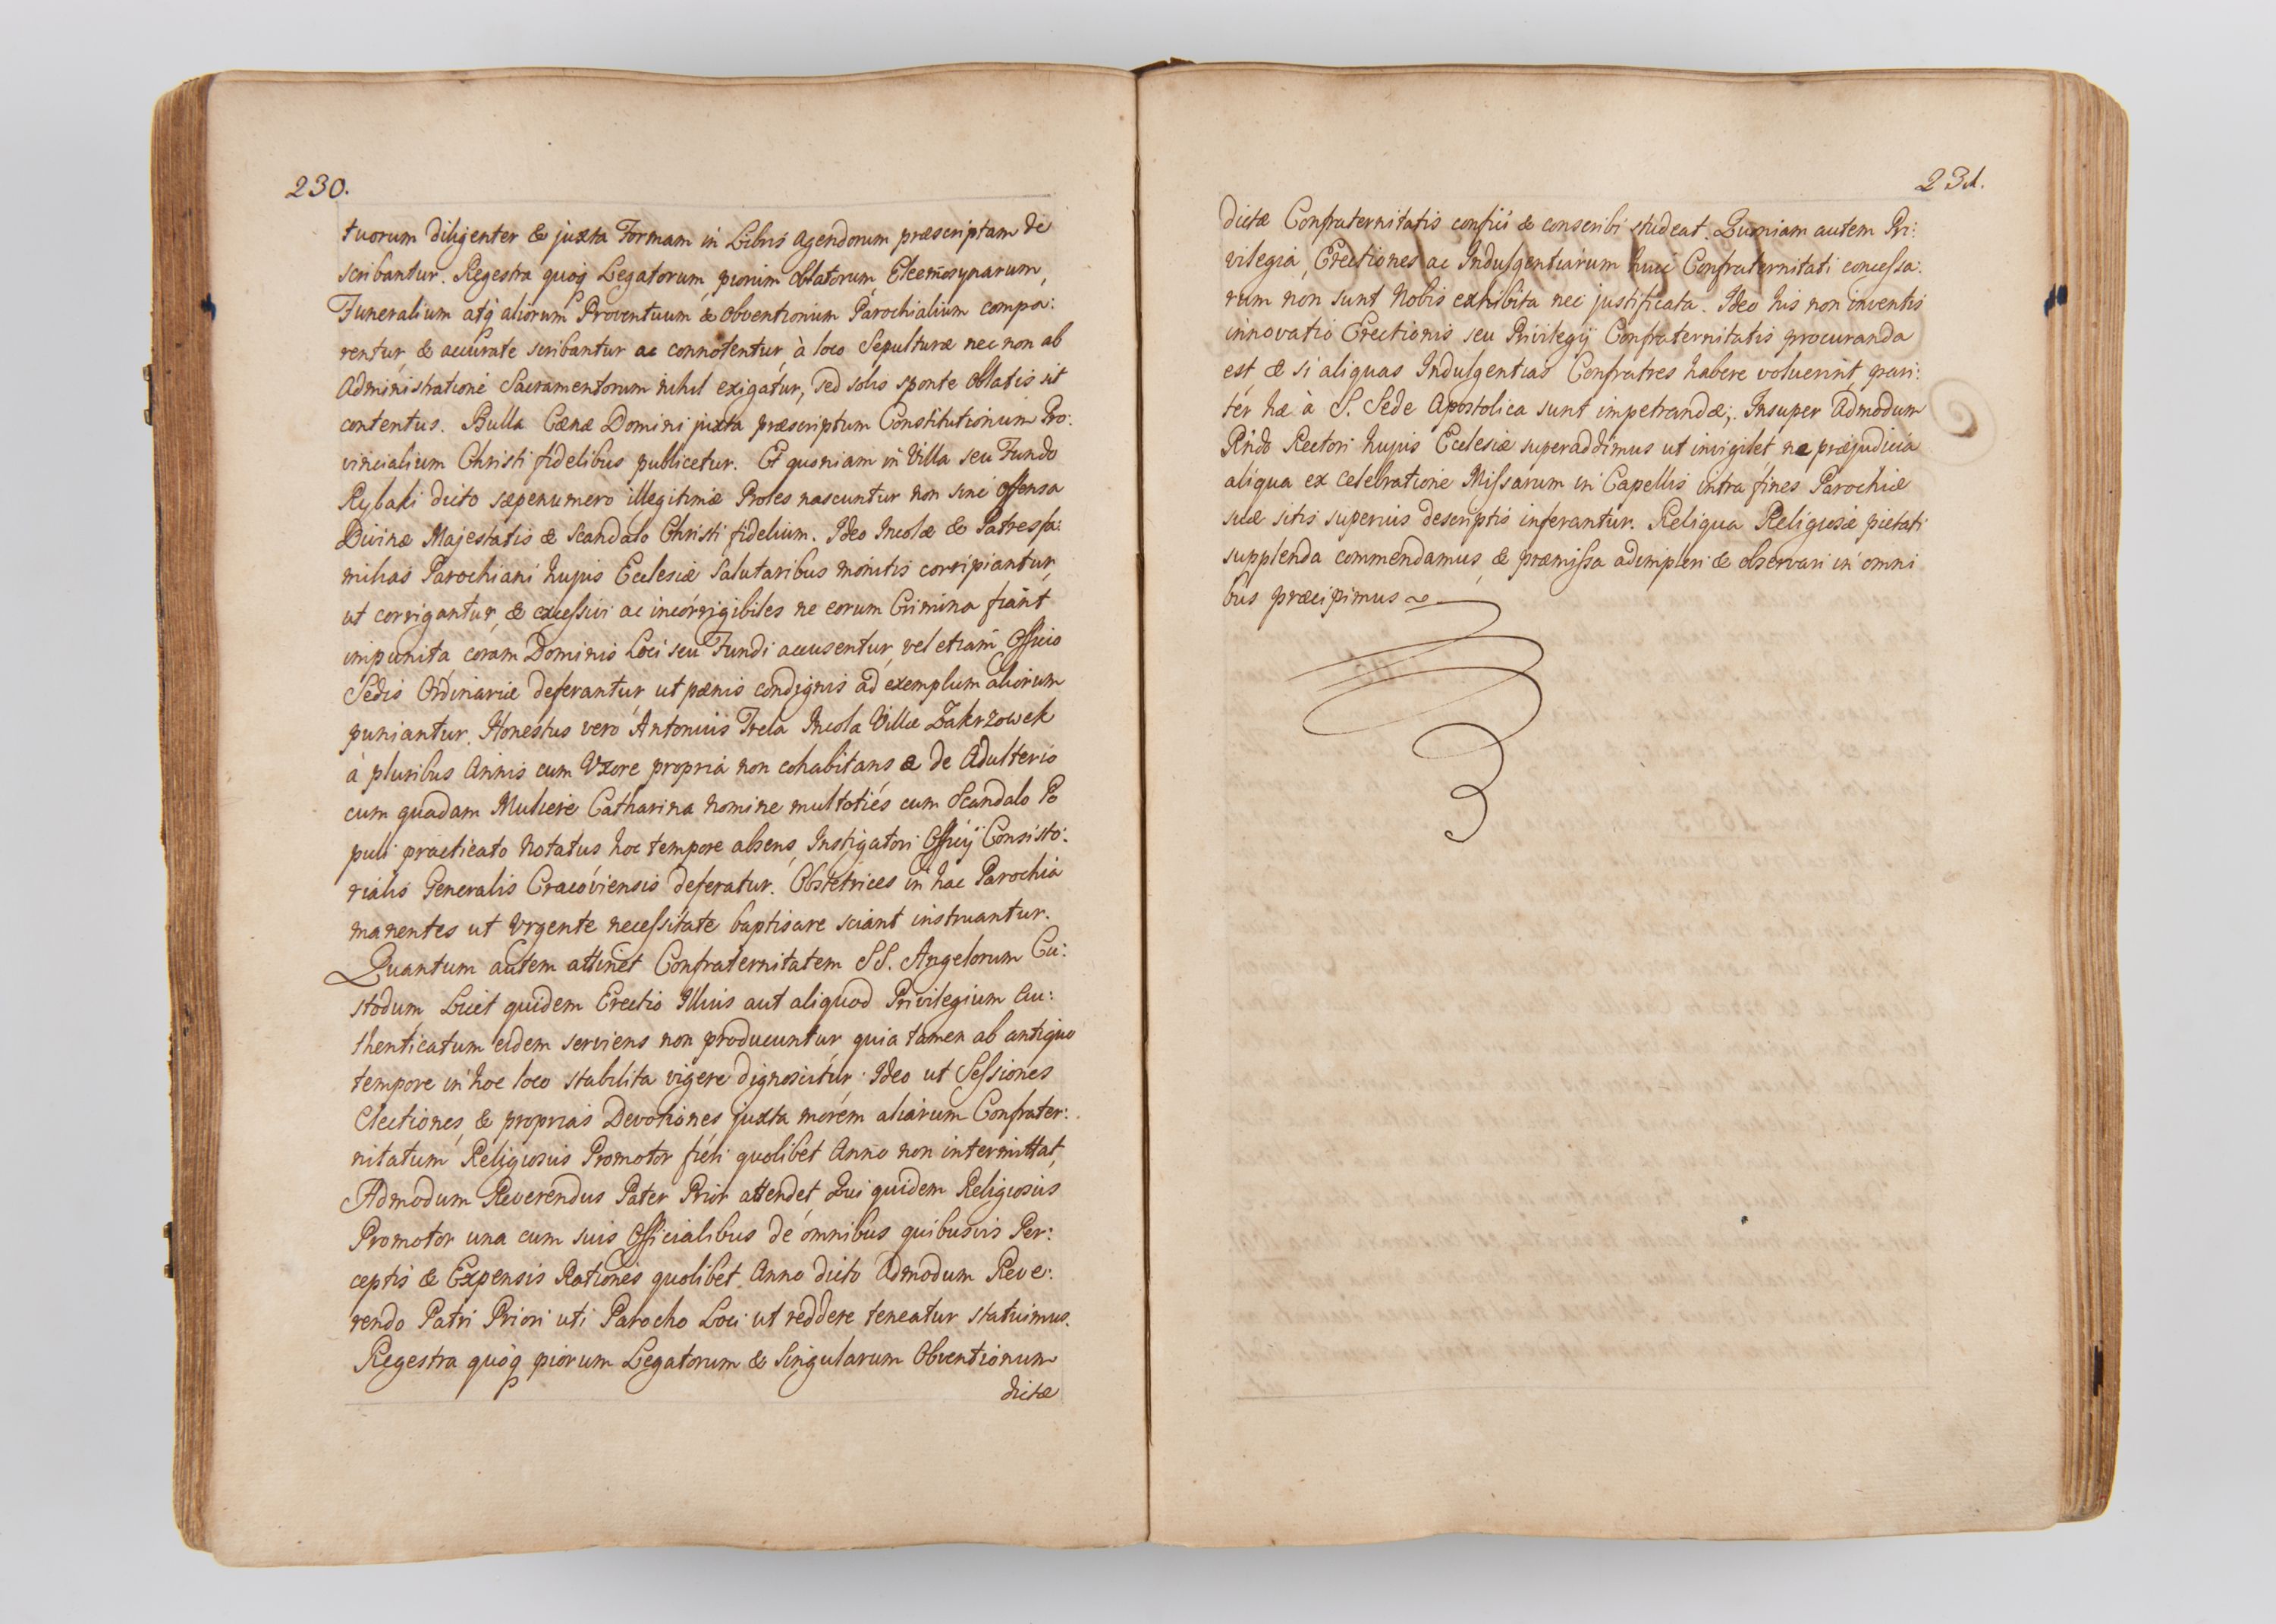 230.
tuorum diligenter & juxta Formam in Libris Agendorum præscriptam de
scribantur. Regestra quoq Legatorum, piorum oblatorum, Eleemosynarum,
Funeralium atq aliorum Proventuum & obventionum Parochialium compa:
rentur, & accurate scribantur ac connotentur, à loco Sepulturæ nec non ab
Administratione Sacramentorum nihil exigatur, sed solis sponte oblatis sit
contentus. Bulla Cænæ Domini juxta præscriptum Constitutionum Pro:
vincialium Christi fidelibus publicetur. Et quoniam in Villa seu Fundo
Rybaki dicto sæpenumero illegitimæ Proles nascuntur non sine offensa
Divinæ Majestatis & Scandalo Christi fidelium. Ideo Incolæ & Patresfa:
milias Parochiani hujus Ecclesiæ Salutaribus monitis corripiantur,
ut corrigantur, & excessivi ac incorrigibiles ne eorum Crimina fiant
impunita, coram Dominis Loci seu Fundi accusentur, vel etiam Officio
Sedis Ordinariæ deferantur, ut pænis condignis ad exemplum aliorum
puniantur. Honestus vero Antonius Trela Incola Villæ Zakrzowek
à pluribus Annis cum Uxore propria non cohabitans & de Adulterio
cum quadam Muliere Catharina nomine multotiés cum Scandalo Po
puli practicato Notatus hoc tempore absens, Instigatori Officij Consisto:
rialis Generalis Cracoviensis deferatur. Obstetrices in hac Parochia
manentes ut Urgente necessitate baptisare sciant instruantur.
Quantum autem attinet Confraternitatem SS. Angelorum Cu:
stodum, Licet quidem Erectio Illius aut aliquod Privilegium Au:
thenticatum eidem serviens non producuntur, quia tamen ab antiquo
tempore in hoc loco stabilita vigere dignoscitur. Ideo ut Sessiones
Electiones, & proprias Devotiones, juxta morem aliarum Confrater:
nitatum Religiosus Promotor fieri quolibet Anno non intermittat,
Admodum Reverendus Pater Prior attendet, Qui quidem Religiosus
Promotor una cum suis Officialibus de omnibus quibusvis Per:
ceptis & Expensis Rationes quolibet Anno dicto Admodum Reve:
rendo Patri Priori uti Parocho Loci ut reddere teneatur statuimus.
Regestra quoq piorum Legatorum & Singularum Obventionum
dictæ
231.
dictæ Confraternitatis confici & conscribi studeat. Quoniam autem Pri:
vilegia, Erectiones ac Indulgentiarum huic Confraternitati concessa:
rum non sunt Nobis exhibita nec justificata. Ideo his non inventis
innovatio Erectionis seu Privilegij Confraternitatis procuranda
est, & si aliquas Indulgentias Confratres habere voluerint, pari:
tér hæ à S. Sede Apostolica sunt impetrandæ; Insuper Admodum
Rndo Rectori hujus Ecclesiæ superaddimus ut invigilet ne præjudicia
aliqua ex celebratione Missarum in Capellis intra fines Parochiæ
suæ sitis superius descriptis inferantur. Reliqua Religiosæ pietati
supplenda commendamus, & præmissa adimpleri & observari in omni
bus præcipimus